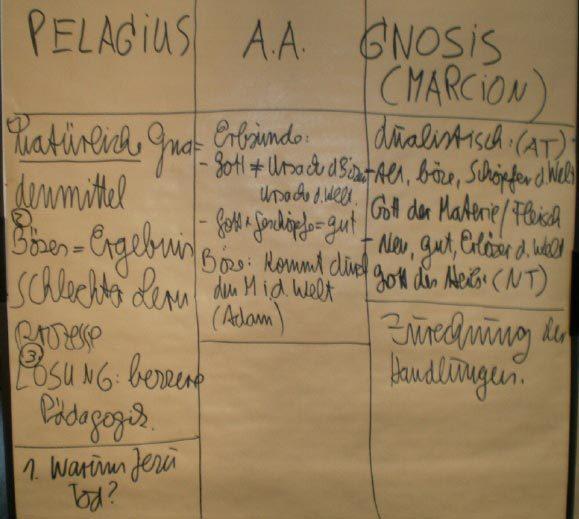 PELAGIUS
①
Natürliche Gna=
denmittel
②
Böses = Ergebnis
schlechter Lern
prozesse
③
LÖSUNG: bessere
Pädagogik.
1. Warum Jesu
Tod?
A.A.
Erbsünde:
- Gott ≠ Ursach d Bösen
Ursach d. Welt.
- Gott + Geschöpfe = gut
Böse: kommt durch
den M i d. Welt
(Adam)
GNOSIS
(MARCION)
dualistisch: (AT)
- Alt, böse, Schöpfer d. Welt
Gott der Materie / Fleisch
- Neu, gut, Erlöser d. Welt
Gott des Heils. (NT)
Zurechnung der
Handlungen.